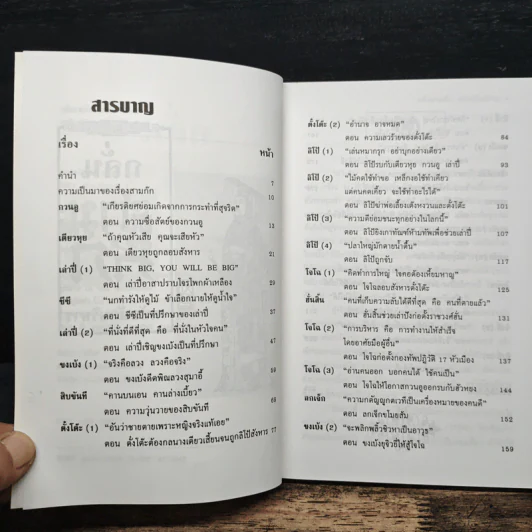 สารบาญ
เรื่อง หน้า
คำนำ 7
ความเป็นมาของเรื่องสามก๊ก 10
กวนอู "เกียรติยศย่อมเกิดจากการกระทำที่สุจริต"
ตอน ความซื่อสัตย์ของกวนอู 13
เตียวหุย "ถ้าคุณหัวเสีย คุณจะเสียหัว"
ตอน เตียวหุยถูกลอบสังหาร 21
เล่าปี่ (1) "THINK BIG, YOU WILL BE BIG"
ตอน เล่าปี่อาสาปราบโจรโพกผ้าเหลือง
ชีซี "นกทำรังให้ดูไม้ ข้าเลือกนายให้ดูน้ำใจ"
ตอน ชีซีเป็นที่ปรึกษาของเล่าปี่
เล่าปี่ (2) "ที่นั่งที่ดีที่สุด คือ ที่นั่งในหัวใจคน"
ตอน เล่าปี่เชิญขงเบ้งเป็นที่ปรึกษา
ขงเบ้ง (1) "จริงคือลวง ลวงคือจริง"
ตอน ขงเบ้งดีดพิณลวงสุมาอี้
สิบขันที "คานบนเอน คานล่างเบี้ยว"
ตอน ความวุ่นวายของสิบขันที
ตั๋งโต๊ะ (1) "อันว่าชายตายเพราะหญิงจริงแท้เอย"
ตอน ตั๋งโต๊ะต้องกลนางเตียวเสี้ยนจนถูกลิโป้สังหาร 77
ตั๋งโต๊ะ (2) "อำนาจ อาจหมด"
ตอน ความเลวร้ายของตั๋งโต๊ะ 84
ลิโป้ (1) "เล่นหมากรุก อย่าบุกอย่างเดียว"
ตอน ลิโป้รบกับเตียวหุย กวนอู เล่าปี่
ลิโป้ (2) "ไม้คดใช้ทำขอ เหล็กงอใช้ทำเคียว
แต่คนคดเคี้ยว จะใช้ทำอะไรได้"
ตอน ลิโป้ฆ่าพ่อเลี้ยงเต๊งหงวนและตั๋งโต๊ะ
ลิโป้ (3) "ความดีย่อมชนะทุกอย่างในโลกนี้"
ตอน ลิโป้ยิงเกาทัณฑ์ห้ามทัพเพื่อช่วยเล่าปี่
ลิโป้ (4) "ปลาใหญ่มักตายน้ำตื้น"
ตอน ลิโป้ถูกจับ 117
โจโฉ (1) "คิดทำการใหญ่ ใจคอต้องเหี้ยมหาญ"
ตอน โจโฉลอบสังหารตั๋งโต๊ะ 125
ฮั่นสิ้น "คนที่เก็บความลับได้ดีที่สุด คือ คนที่ตายแล้ว"
ตอน ฮั่นสิ้นช่วยเล่าปังก่อตั้งราชวงศ์ฮั่น 131
โจโฉ (2) "การบริหาร คือ การทำงานให้สำเร็จ
โดยอาศัยมือผู้อื่น"
ตอน โจโฉก่อตั้งกองทัพปฏิวัติ 17 หัวเมือง 137
โจโฉ (3) "อ่านคนออก บอกคนได้ ใช้คนเป็น"
ตอน โจโฉให้โอกาสกวนอูออกรบกับฮัวหยง 144
ลกเจ๊ก "ความกตัญญูกตเวทีเป็นเครื่องหมายของคนดี"
ตอน ลกเจ๊กขโมยส้ม 152
ขงเบ้ง (2) "จะพลิกพลิ้วชิวหาเป็นอาวุธ"
ตอน ขงเบ้งยุจิวยี่ให้สู้โจโฉ 159